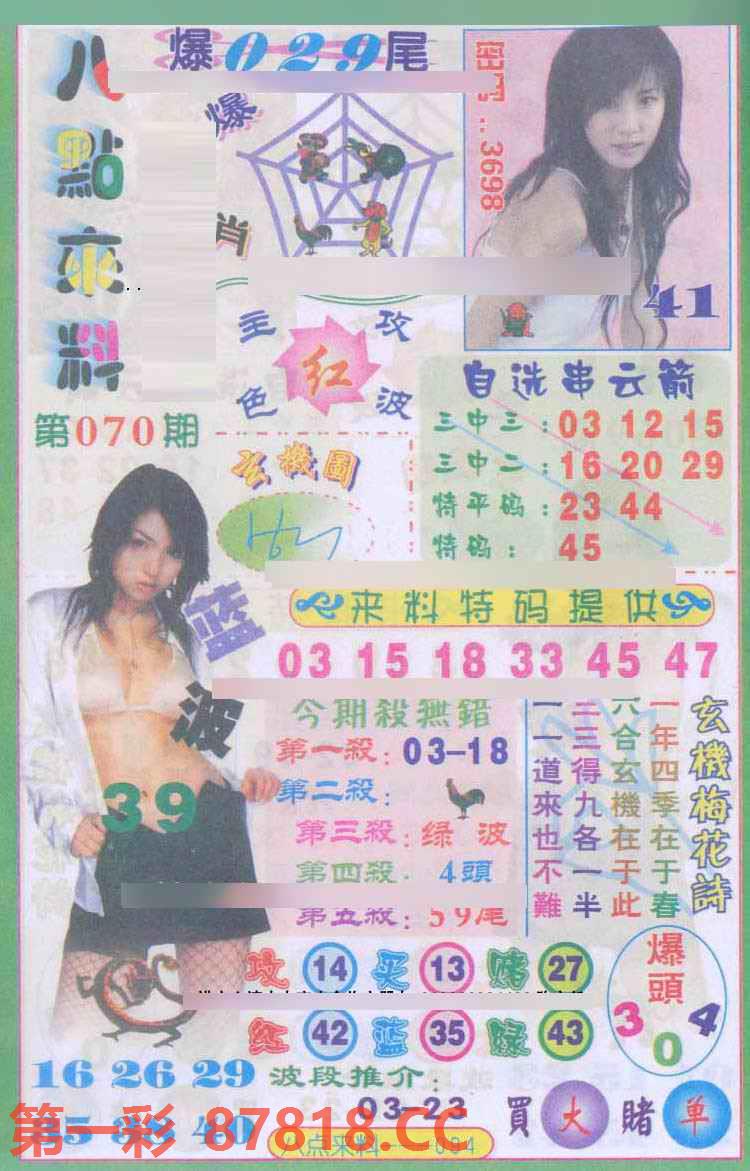 八點來料
第070期
爆029尾
爆
肖
3698
41
主攻
红
色波
自选串云箭
三中三：03 12 15
三中二：16 20 29
特平码：23 44
特码：45
玄機圖
来料特码提供
03 15 18 33 45 47
蓝波
39
今期殺無錯
第一殺：03-18
第二殺：
第三殺：绿波
第四殺：4頭
第五殺：59尾
玄機梅花詩
一年四季在于春
六合玄機在于此
二三得九各一半
一一道來也不難
攻 14 买 13 赌 27
红 42 蓝 35 绿 43
爆頭
3 0 4
16 26 29
波段推介：
03-23
買大赌单
第一彩 87818.CC
八点来料